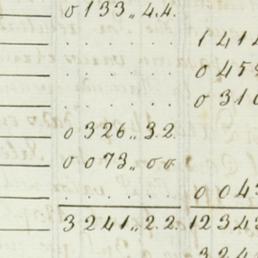 0133,,4.4.
. . . . . 1414
. . . . . 0459
. . . . . 0310
0326,,3.2.
0073,,00
. . . . . 0043
3241,,2.2. 12343
324